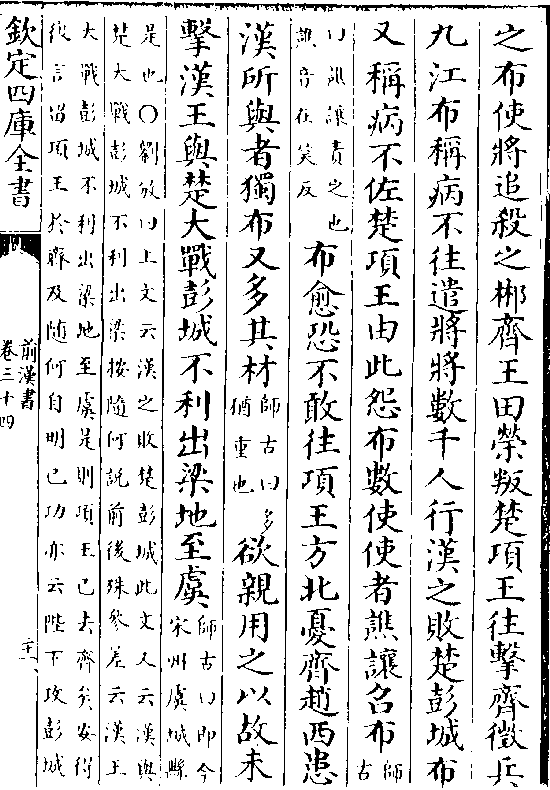 之布使將追殺之郴齊王田榮叛楚項王往擊齊徵兵
九江布稱病不往遣將將數千人行漢之敗楚彭城布
又稱病不佐楚項王由此怨布數使使者譙讓召布師古
曰譙讓責之也
譙音在笑反
布愈恐不敢往項王方北憂齊趙西患
漢所與者獨布又多其材師古曰多
猶重也
欲親用之以故未
擊漢王與楚大戰彭城不利出梁地至虞師古曰即今
宋州虞城縣
是也○劉攽曰上文云漢之敗楚彭城此文又云漢與
楚大戰彭城不利出梁按隨何說前後殊參差云漢王
大戰彭城不利出梁地至虞是則項王已去齊矣安得
彼言留項王於齊及隨何自明已功亦云陛下攻彭城
欽定四庫全書
前漢書
卷三十四